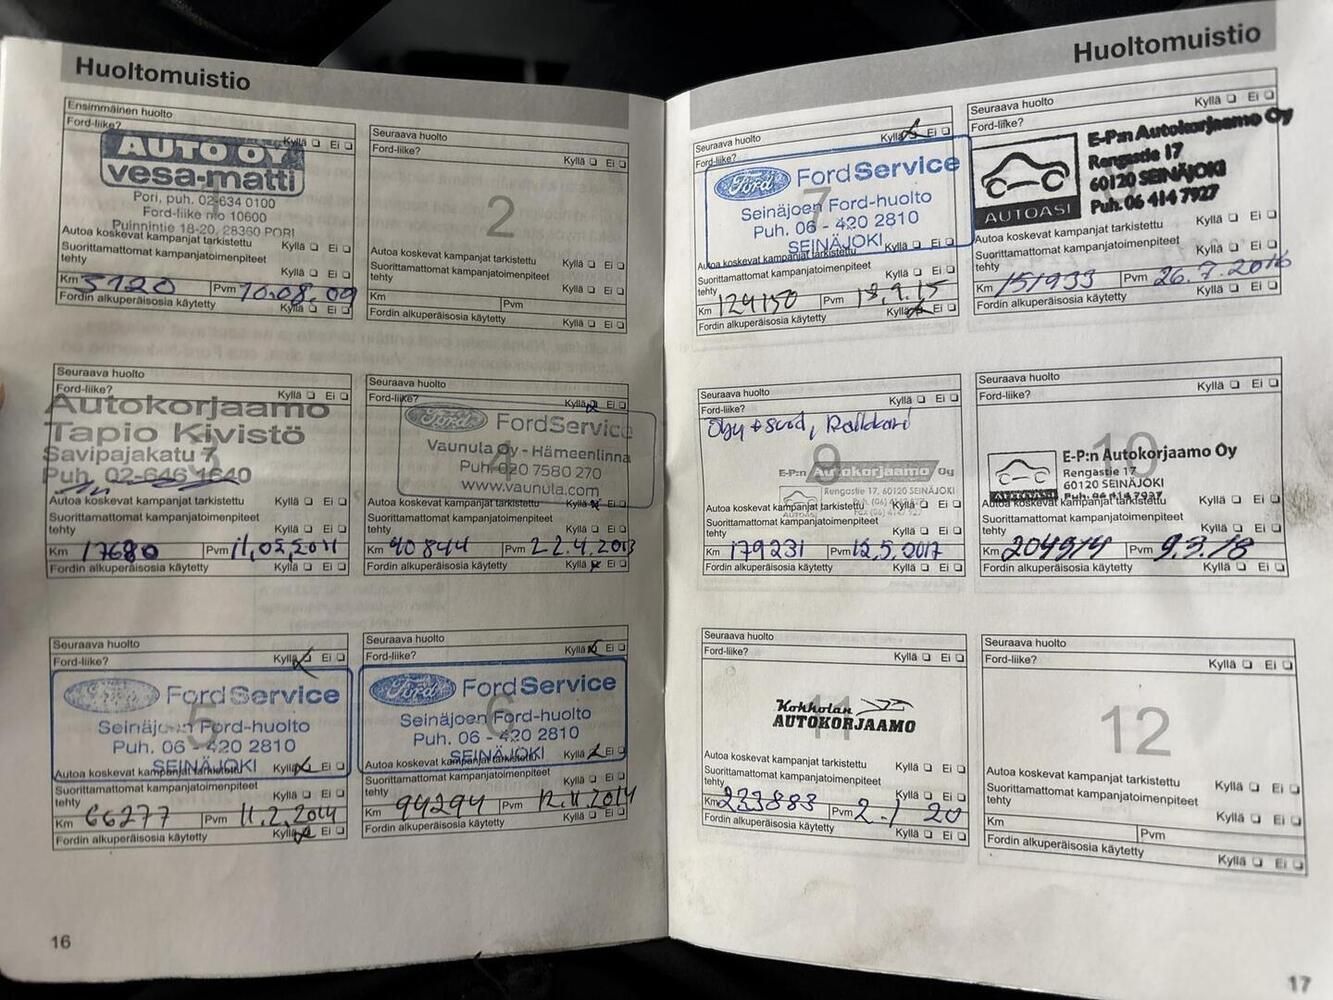 Huoltomuistio
Ensimmäinen huolto
Ford-liike? Kyllä Ei
AUTO OY
vesa-matti
1
Pori, puh. 02-634 0100
Ford-liike n:o 10600
Puinnintie 18-20, 28360 PORI
Autoa koskevat kampanjat tarkistettu Kyllä Ei
Suorittamattomat kampanjatoimenpiteet
tehty Kyllä Ei
Km 3120 Pvm 10.08.09
Fordin alkuperäisosia käytetty Kyllä Ei
Seuraava huolto
Ford-liike? Kyllä Ei
2
Autoa koskevat kampanjat tarkistettu Kyllä Ei
Suorittamattomat kampanjatoimenpiteet
tehty Kyllä Ei
Km Pvm
Fordin alkuperäisosia käytetty Kyllä Ei
Seuraava huolto
Ford-liike? Kyllä Ei
Autokorjaamo
Tapio Kivistö
3
Savipajakatu 7
Puh. 02-646 1640
Autoa koskevat kampanjat tarkistettu Kyllä Ei
Suorittamattomat kampanjatoimenpiteet
tehty Kyllä Ei
Km 17680 Pvm 11,05,2011
Fordin alkuperäisosia käytetty Kyllä Ei
Seuraava huolto
Ford-liike? Kyllä Ei
Ford FordService
4
Vaunula Oy - Hämeenlinna
Puh. 020 7580 270
www.vaunula.com
Autoa koskevat kampanjat tarkistettu Kyllä Ei
Suorittamattomat kampanjatoimenpiteet
tehty Kyllä Ei
Km 40844 Pvm 22.4.2013
Fordin alkuperäisosia käytetty Kyllä Ei
Seuraava huolto
Ford-liike? Kyllä Ei
Ford FordService
5
Seinäjoen Ford-huolto
Puh. 06 - 420 2810
SEINÄJOKI
Autoa koskevat kampanjat tarkistettu Kyllä Ei
Suorittamattomat kampanjatoimenpiteet
tehty Kyllä Ei
Km 66277 Pvm 11.2.2014
Fordin alkuperäisosia käytetty Kyllä Ei
Seuraava huolto
Ford-liike? Kyllä Ei
Ford FordService
6
Seinäjoen Ford-huolto
Puh. 06 - 420 2810
SEINÄJOKI
Autoa koskevat kampanjat tarkistettu Kyllä Ei
Suorittamattomat kampanjatoimenpiteet
tehty Kyllä Ei
Km 94294 Pvm 12.11.2014
Fordin alkuperäisosia käytetty Kyllä Ei
16
Huoltomuistio
Seuraava huolto
Ford-liike? Kyllä Ei
Ford FordService
7
Seinäjoen Ford-huolto
Puh. 06 - 420 2810
SEINÄJOKI
Autoa koskevat kampanjat tarkistettu Kyllä Ei
Suorittamattomat kampanjatoimenpiteet
tehty Kyllä Ei
Km 124150 Pvm 18.9.15
Fordin alkuperäisosia käytetty Kyllä Ei
Seuraava huolto
Ford-liike? Kyllä Ei
E-P:n Autokorjaamo Oy
Rengastie 17
60120 SEINÄJOKI
Puh. 06 414 7927
AUTOASI
Autoa koskevat kampanjat tarkistettu Kyllä Ei
Suorittamattomat kampanjatoimenpiteet
tehty Kyllä Ei
Km 151933 Pvm 26.7.2016
Fordin alkuperäisosia käytetty Kyllä Ei
Seuraava huolto
Ford-liike? Kyllä Ei
9
E-P:n Autokorjaamo Oy
Rengastie 17, 60120 SEINÄJOKI
Autoa koskevat kampanjat tarkistettu Kyllä Ei
Suorittamattomat kampanjatoimenpiteet
tehty Kyllä Ei
Km 179231 Pvm 12.5.2017
Fordin alkuperäisosia käytetty Kyllä Ei
Seuraava huolto
Ford-liike? Kyllä Ei
10
E-P:n Autokorjaamo Oy
Rengastie 17
60120 SEINÄJOKI
Puh. 06 414 7927
AUTOASI
Autoa koskevat kampanjat tarkistettu Kyllä Ei
Suorittamattomat kampanjatoimenpiteet
tehty Kyllä Ei
Km Pvm 9.3.18
Fordin alkuperäisosia käytetty Kyllä Ei
Seuraava huolto
Ford-liike? Kyllä Ei
11
Kokkolan
AUTOKORJAAMO
Autoa koskevat kampanjat tarkistettu Kyllä Ei
Suorittamattomat kampanjatoimenpiteet
tehty Kyllä Ei
Km 223883 Pvm 2.1 20
Fordin alkuperäisosia käytetty Kyllä Ei
Seuraava huolto
Ford-liike? Kyllä Ei
12
Autoa koskevat kampanjat tarkistettu Kyllä Ei
Suorittamattomat kampanjatoimenpiteet
tehty Kyllä Ei
Km Pvm
Fordin alkuperäisosia käytetty Kyllä Ei
17